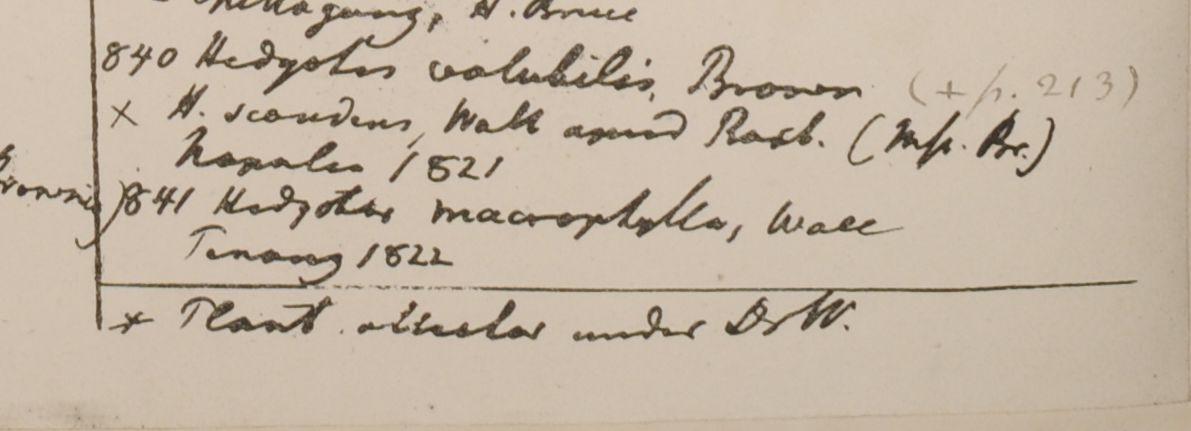 Chittagong, H. Bruce
840 Hedyotis volubilis, Brown (+ p. 213)
× H. scandens, Wall apud Roxb. (Msp. Br.)
Napalia 1821
841 Hedyotis macrophylla, Wall
Penang 1822
× Plant under Dr W.